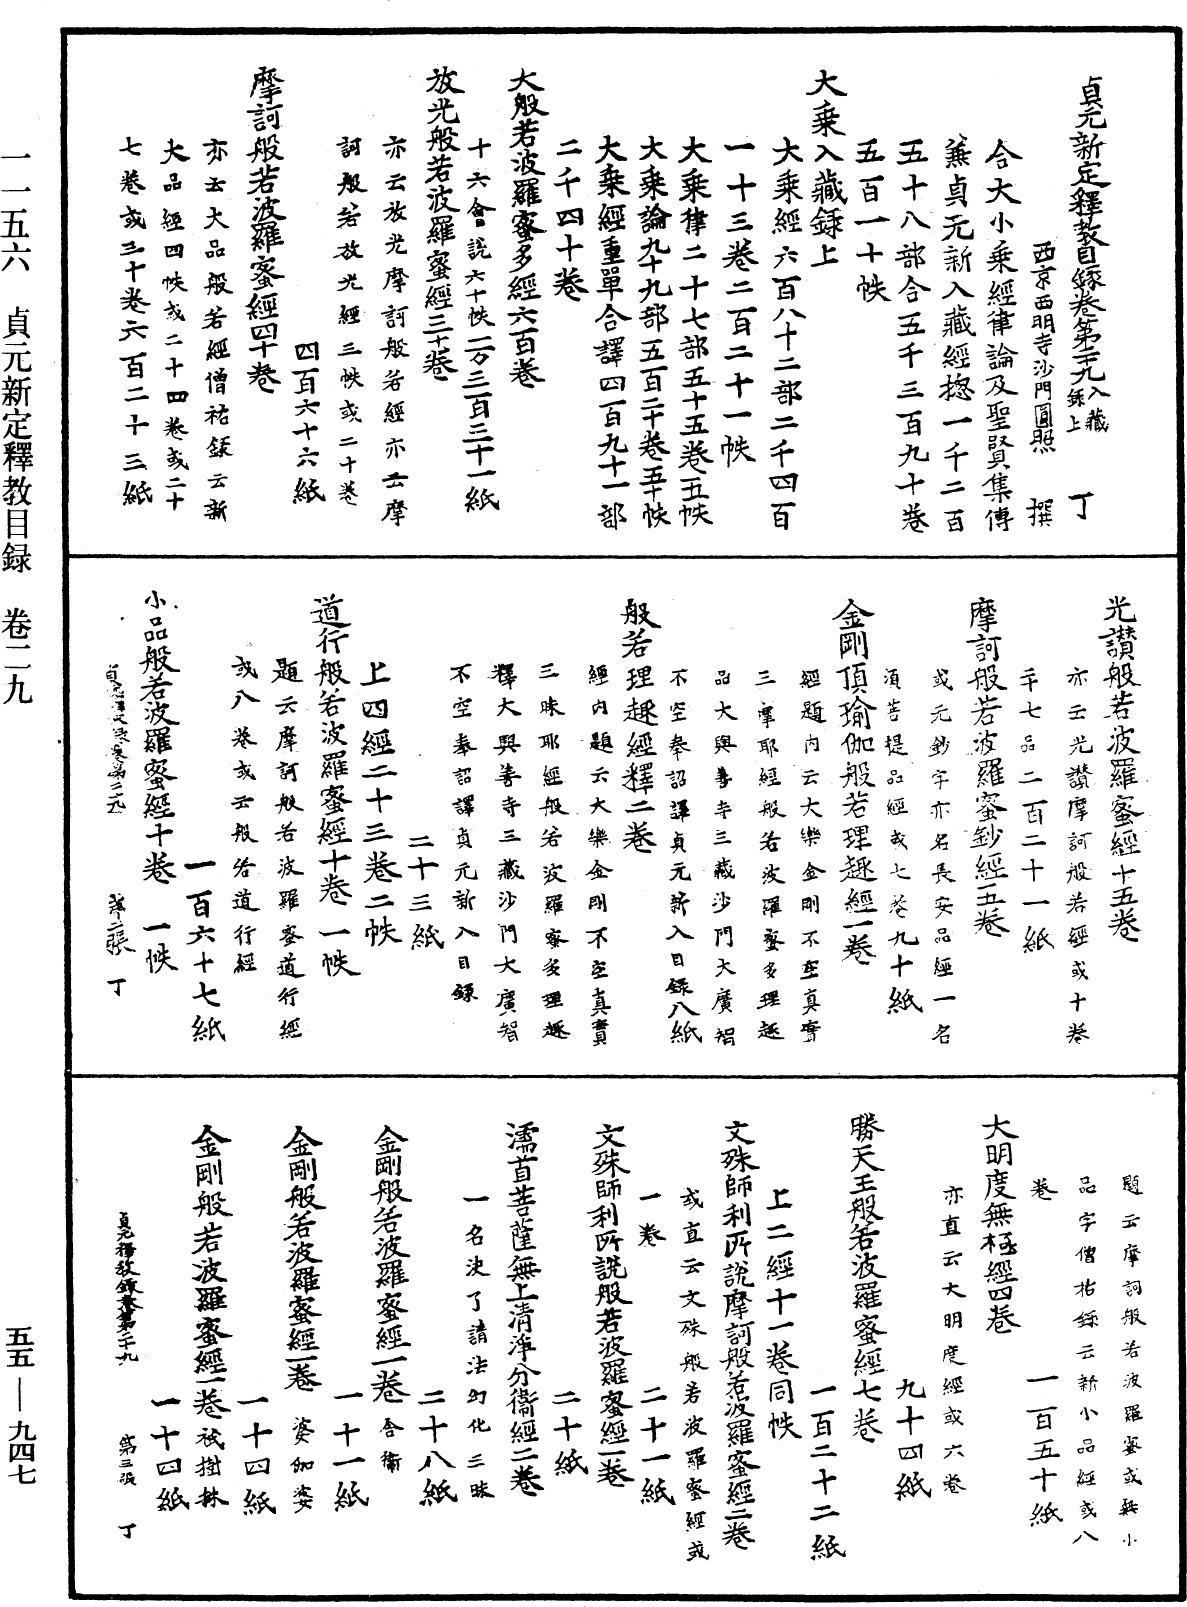 一一五六 貞元新定釋教目録 卷二九
五五—九四七
貞元新定釋教目録卷第二十九 入藏録上 丁
西京西明寺沙門圓照 撰
合大小乗經律論及聖賢集傳
兼貞元新入藏經揔一千二百
五十八部合五千三百九十卷
五百一十帙
大乗入藏録上
大乗經六百八十二部二千四百
一十三卷二百二十一帙
大乗律二十七部五十五卷五帙
大乗論九十九部五百二十卷五十帙
大乗經重單合譯四百九十一部
二千四十卷
大般若波羅蜜多經六百卷
十六會説六十帙一万三百三十一紙
放光般若波羅蜜經三十卷
亦云放光摩訶般若經亦云摩
訶般若放光經三帙或二十卷
四百六十六紙
摩訶般若波羅蜜經四十卷
亦云大品般若經僧祐録云新
大品經四帙或二十四卷或二十
七卷或三十卷六百二十三紙
光讃般若波羅蜜經十五卷
亦云光讃摩訶般若經或十卷
二十七品二百二十一紙
摩訶般若波羅蜜鈔經五卷
或无鈔字亦名長安品經一名
須菩提品經或七卷九十紙
金剛頂瑜伽般若理趣經一卷
經題内云大樂金剛不空真實
三摩耶經般若波羅蜜多理趣
品大興善寺三藏沙門大廣智
不空奉詔譯貞元新入目録八紙
般若理趣經釋二卷
經内題云大樂金剛不空真實
三昧耶經般若波羅蜜多理趣
釋大興善寺三藏沙門大廣智
不空奉詔譯貞元新入目録
二十三紙
上四經二十三卷二帙
道行般若波羅蜜經十卷 一帙
題云摩訶般若波羅蜜道行經
或八卷或云般若道行經
一百六十七紙
小品般若波羅蜜經十卷 一帙
第二張 丁
題云摩訶般若波羅蜜或無小
品字僧祐録云新小品經或八
卷 一百五十紙
大明度無極經四卷
亦直云大明度經或六卷
九十四紙
勝天王般若波羅蜜經七卷
一百二十二紙
上二經十一卷同帙
文殊師利所説摩訶般若波羅蜜經二卷
或直云文殊般若波羅蜜經或
一卷 二十一紙
文殊師利所説般若波羅蜜經一卷
二十紙
濡首菩薩無上清淨分衞經二卷
一名決了諸法幻化三昧
二十八紙
金剛般若波羅蜜經一卷 舍衞
一十一紙
金剛般若波羅蜜經一卷 婆伽婆
一十四紙
金剛般若波羅蜜經一卷 祇樹林
一十四紙
貞元釋教録卷第二十九 第三張 丁